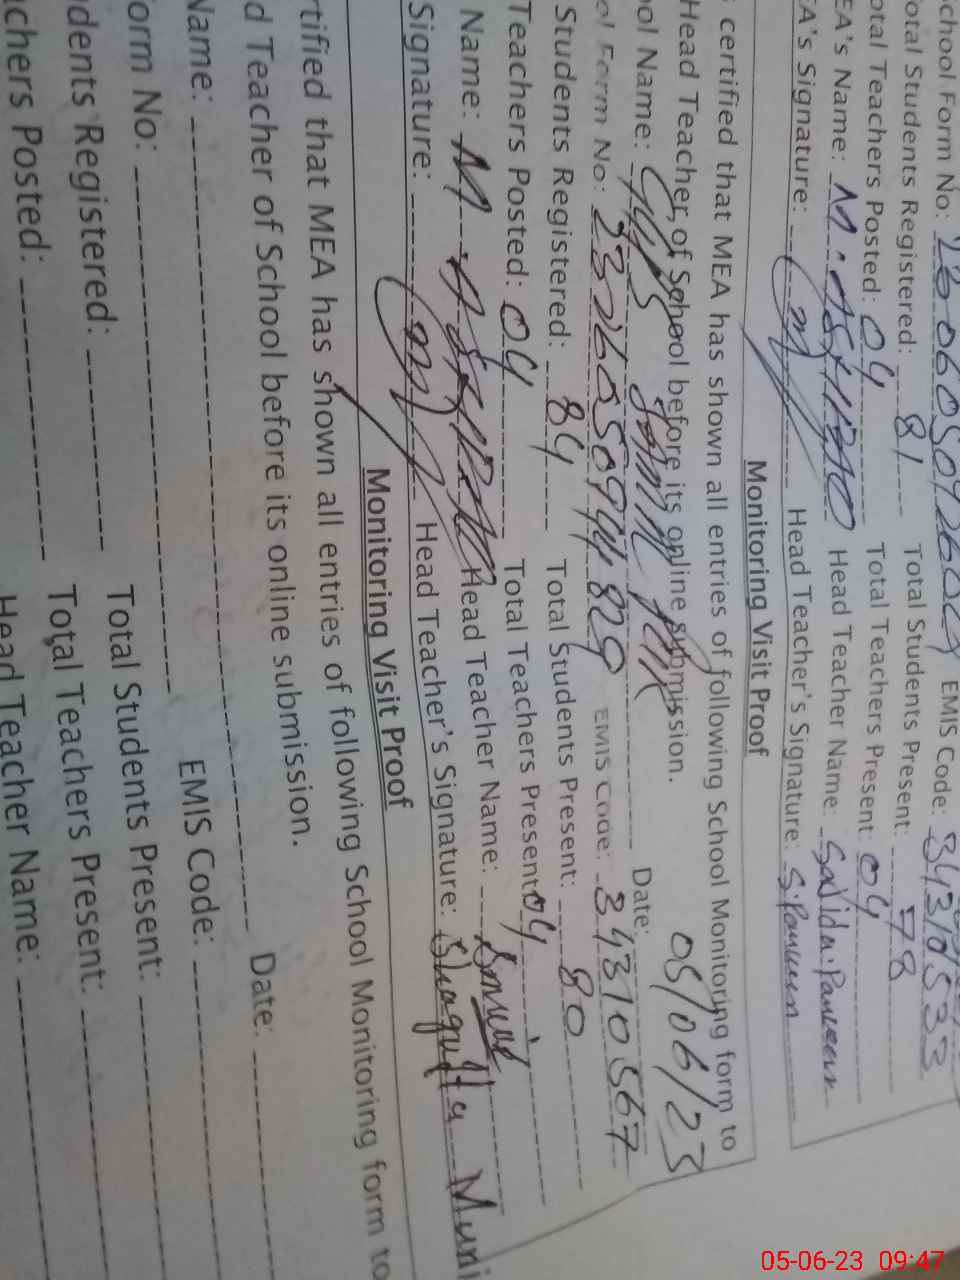 School Form No: EMIS Code: 34310533
Total Students Registered: 81 Total Students Present: 78
Total Teachers Posted: 04 Total Teachers Present: 04
EA's Name: M. Head Teacher Name: Sajida Parveen
EA's Signature: Head Teacher's Signature: S. Parveen
Monitoring Visit Proof
certified that MEA has shown all entries of following School Monitoring form to
Head Teacher of School before its online submission.
ool Name: GGPS Date: 05/06/23
ol Form No: EMIS Code: 34310567
Students Registered: 84 Total Students Present: 80
Teachers Posted: 04 Total Teachers Present: 04
Name: M. Head Teacher Name:
Signature: Head Teacher's Signature: Shagufta Muni
Monitoring Visit Proof
rtified that MEA has shown all entries of following School Monitoring form to
d Teacher of School before its online submission.
Name: Date:
orm No: EMIS Code:
dents Registered: Total Students Present:
achers Posted: Total Teachers Present:
Head Teacher Name:
05-06-23 09:47